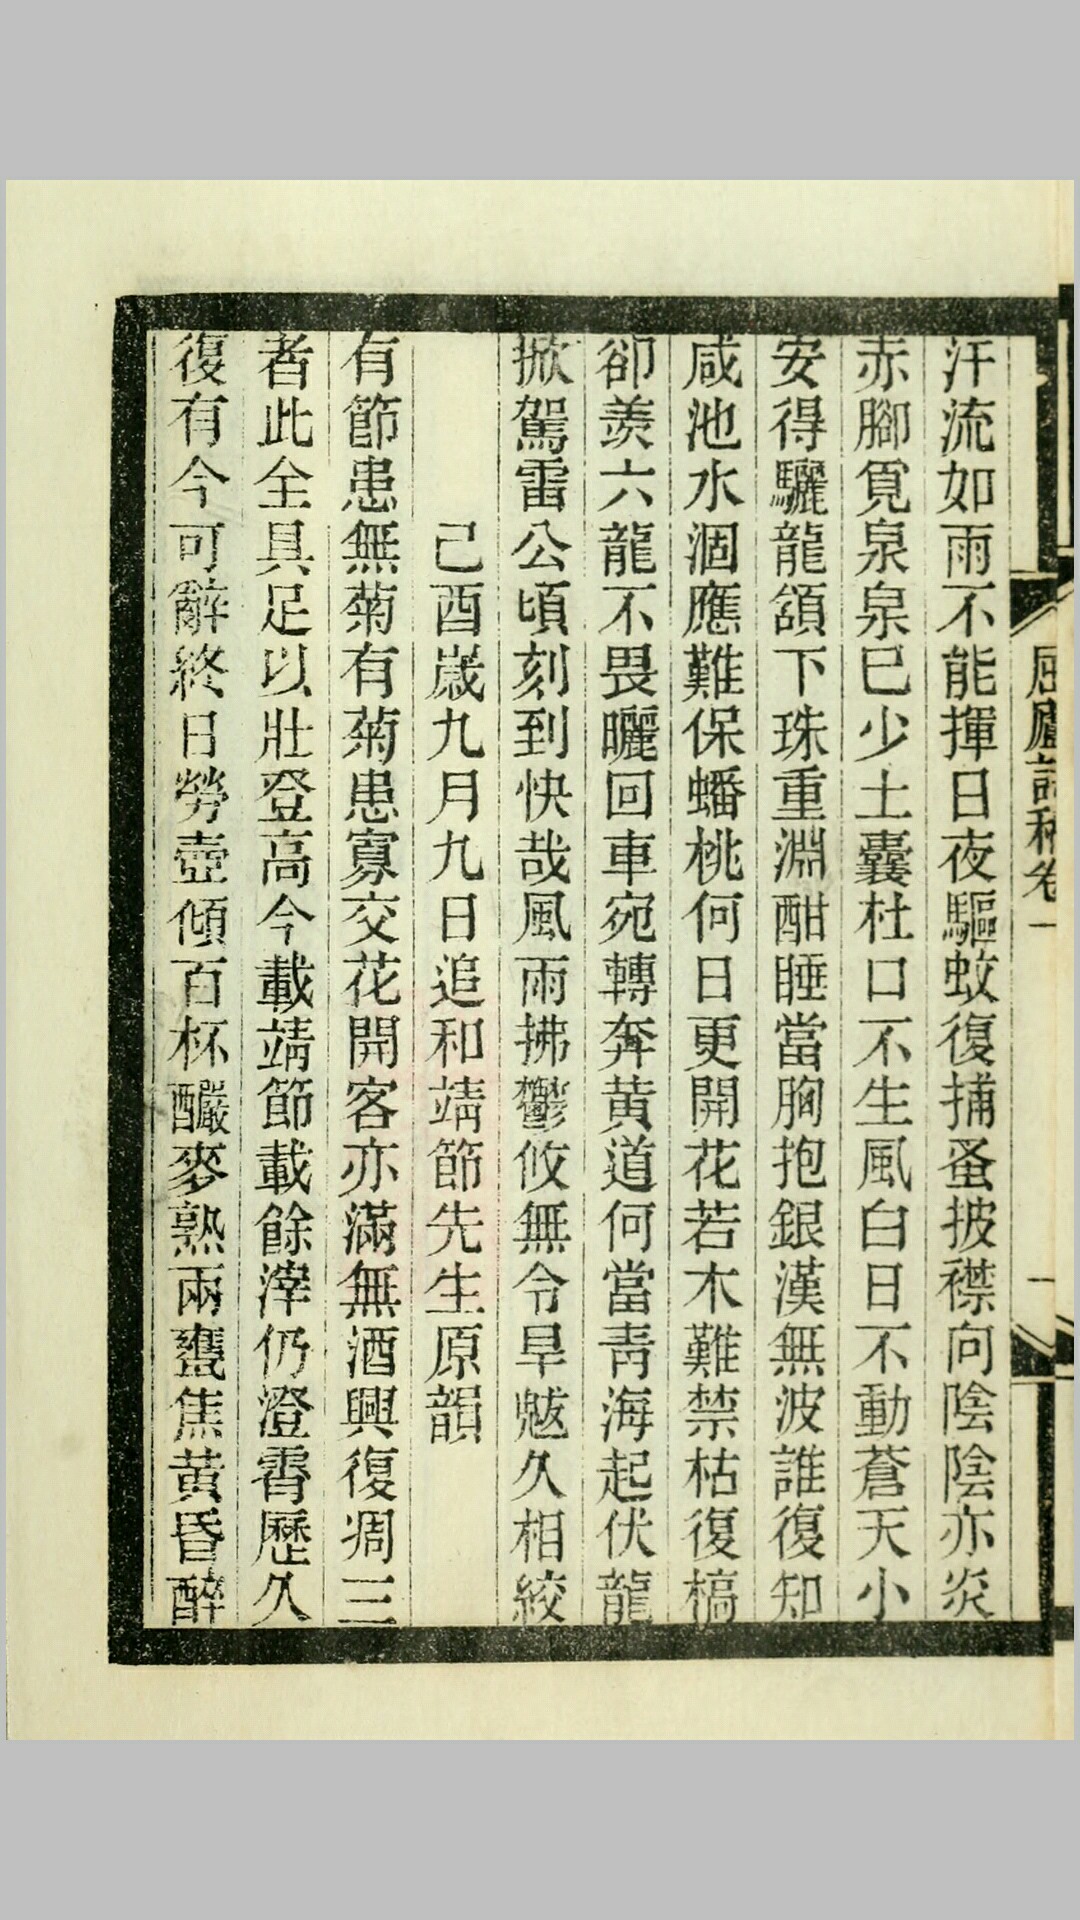 屈廬詩稿卷一
一
汗流如雨不能揮日夜驅蚊復捕蚤披襟向陰陰亦炎
赤腳覓泉泉已少土囊杜口不生風白日不動蒼天小
安得驪龍頷下珠重淵酣睡當胸抱銀漢無波誰復知
咸池水涸應難保蟠桃何日更開花若木難禁枯復槁
卻羨六龍不畏曬回車宛轉奔黃道何當靑海起伏龍
掀駕雷公頃刻到快哉風雨拂鬱攸無令旱魃久相絞
己酉歲九月九日追和靖節先生原韻
有節患無菊有菊患寡交花開客亦滿無酒興復凋三
者此全具足以壯登高今載靖節載餘滓仍澄霄歷久
復有今可辭終日勞壺傾百杯釅麥熟兩甕焦黃昏醉